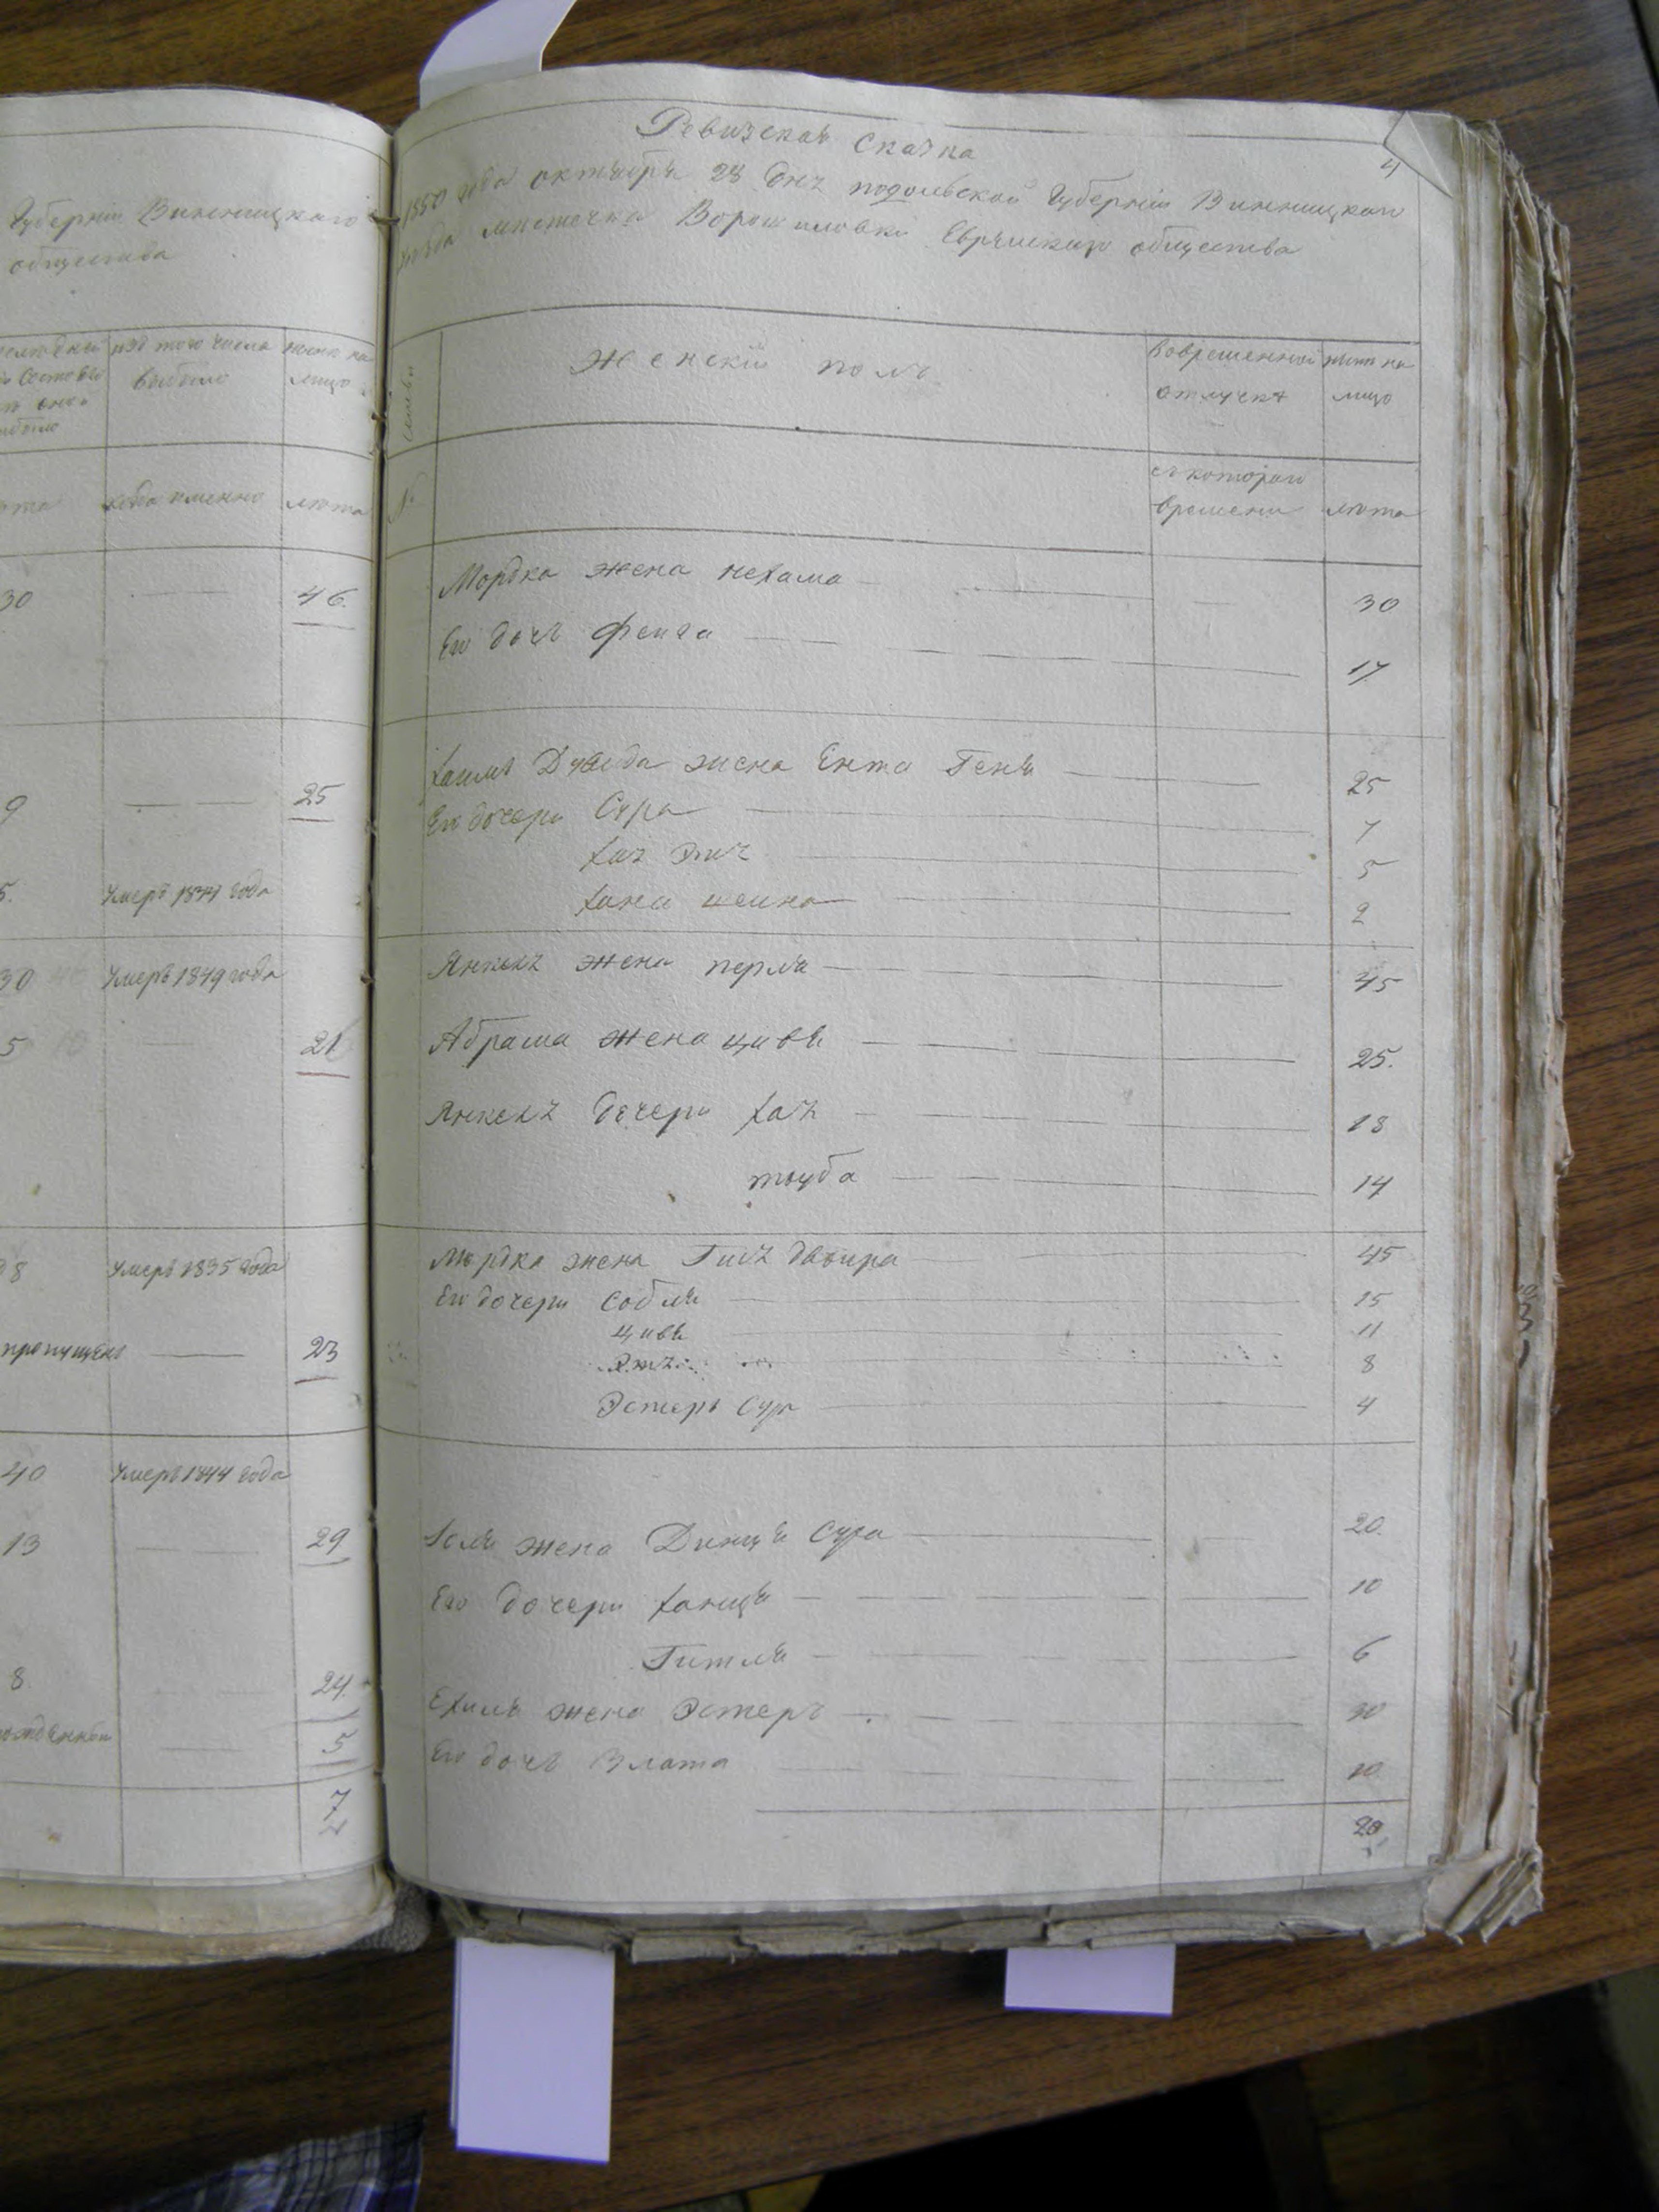 Губерніи Винницкаго
общества
изъ того числа
выбыло
лицо
когда именно
лѣта
30
46.
9
25
5.
Умеръ 1841 года
30
Умеръ 1849 года
5
21
Умеръ 1835 года
пропущенъ
23
40
Умеръ 1844 года
13
29
8
24
5
7
Ревизская Сказка
4
1850 года октября 28 дня подольской Губерніи Винницкаго
уѣзда мистечка Ворошиловки Еврейскаго общества
семьи
Женскій полъ
Вовременной
отлучкѣ
нынѣ на
лицо
№
съ котораго
времени
лѣта
Мордка жена Нехама 30
Его дочь Фейга 17
Хаимъ Дувида жена Ента Геня 25
Его дочери Сура 7
Хая Этя 5
Хана шеина 2
Янкеля жена перля 45
Абрама жена цивя 25.
Янкеля дочери Хая 18
тауба 14
Мордка жена Гитя двоира 45
Его дочери Собля 15
Цивя 11
Этя 8
Эстеръ Сура 4
жена Динця Сура 20
Его дочери Ханця 10
Гитля 6
Ехиля жена Эстеръ 30
Его дочь Злата 10
20